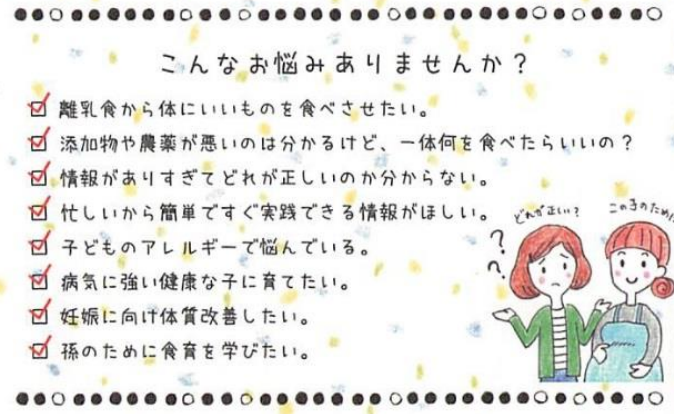 こんなお悩みありませんか？
離乳食から体にいいものを食べさせたい。
添加物や農薬が悪いのは分かるけど、一体何を食べたらいいの？
情報がありすぎてどれが正しいのか分からない。
忙しいから簡単ですぐ実践できる情報がほしい。
どれが正しい？
この子のため!
??
子どものアレルギーで悩んでいる。
病気に強い健康な子に育てたい。
妊娠に向け体質改善したい。
孫のために食育を学びたい。